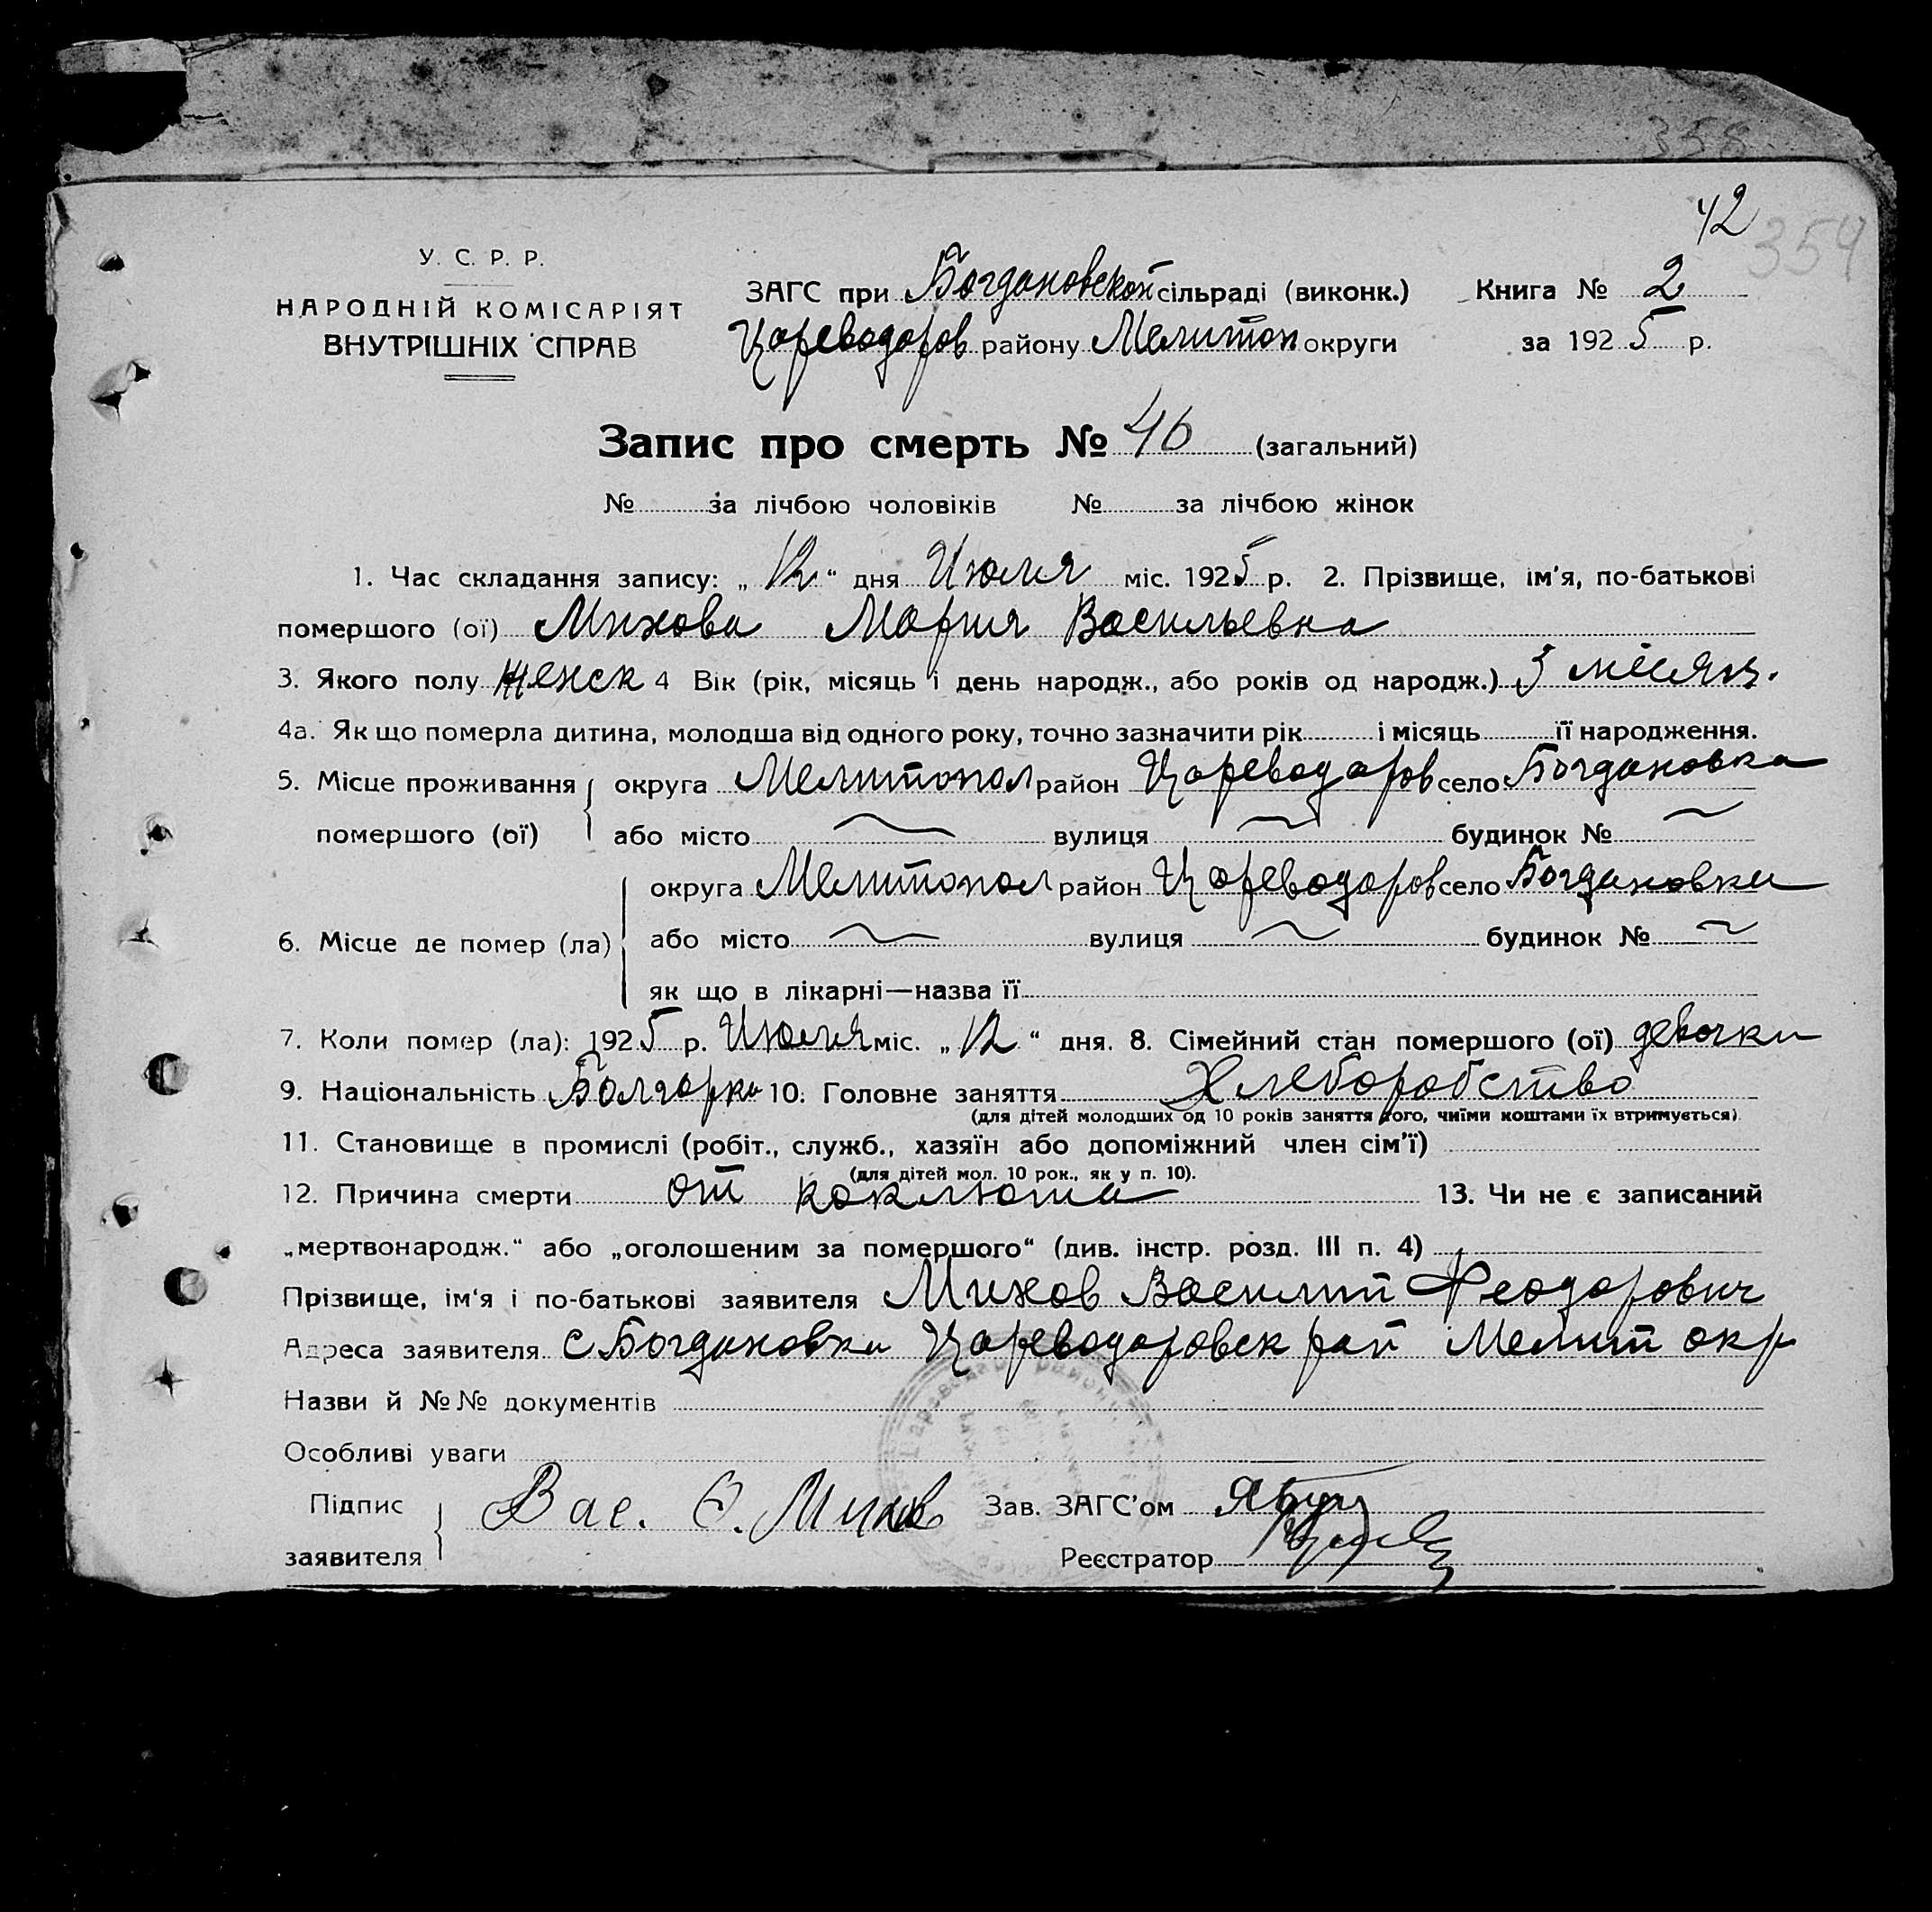 358
42
354
У. С. Р. Р.
НАРОДНІЙ КОМІСАРІЯТ
ВНУТРІШНІХ СПРАВ
ЗАГС при Богдановской сільраді (виконк.) Книга № 2
Цареводаров району Мелитоп округи за 1925 р.
Запис про смерть № 46 (загальний)
№ за лічбою чоловіків № за лічбою жінок
1. Час складання запису: „12“ дня Июля міс. 1925 р. 2. Прізвище, ім'я, по-батькові
помершого (ої) Михова Мария Васильевна
3. Якого полу женск 4 Вік (рік, місяць і день народж., або років од народж.) 5 месяц.
4а. Як що померла дитина, молодша від одного року, точно зазначити рік і місяць її народження.
5. Місце проживання округа Мелитопол район Цареводаров село Богдановка
помершого (ої) або місто вулиця будинок №
округа Мелитопол район Цареводаров село Богдановка
6. Місце де помер (ла) або місто вулиця будинок №
як що в лікарні—назва її
7. Коли помер (ла): 1925 р. Июля міс. „12“ дня. 8. Сімейний стан помершого (ої) девочка
9. Національність Болгарка 10. Головне заняття Хлеборобство
(для дітей молодших од 10 років заняття того, чиїми коштами їх втримується)
11. Становище в промислі (робіт., служб., хазяїн або допоміжний член сім'ї)
(для дітей мол. 10 рок., як у п. 10).
12. Причина смерти от коклюша 13. Чи не є записаний
„мертвонародж.“ або „оголошеним за помершого“ (див. інстр. розд. III п. 4)
Прізвище, ім'я і по-батькові заявителя Михов Василий Феодорович
Адреса заявителя с Богдановка Цареводаровск рай Мелит окр
Назви й №№ документів
Особливі уваги
Підпис Вас. Ѳ. Михов Зав. ЗАГС'ом
заявителя Реєстратор